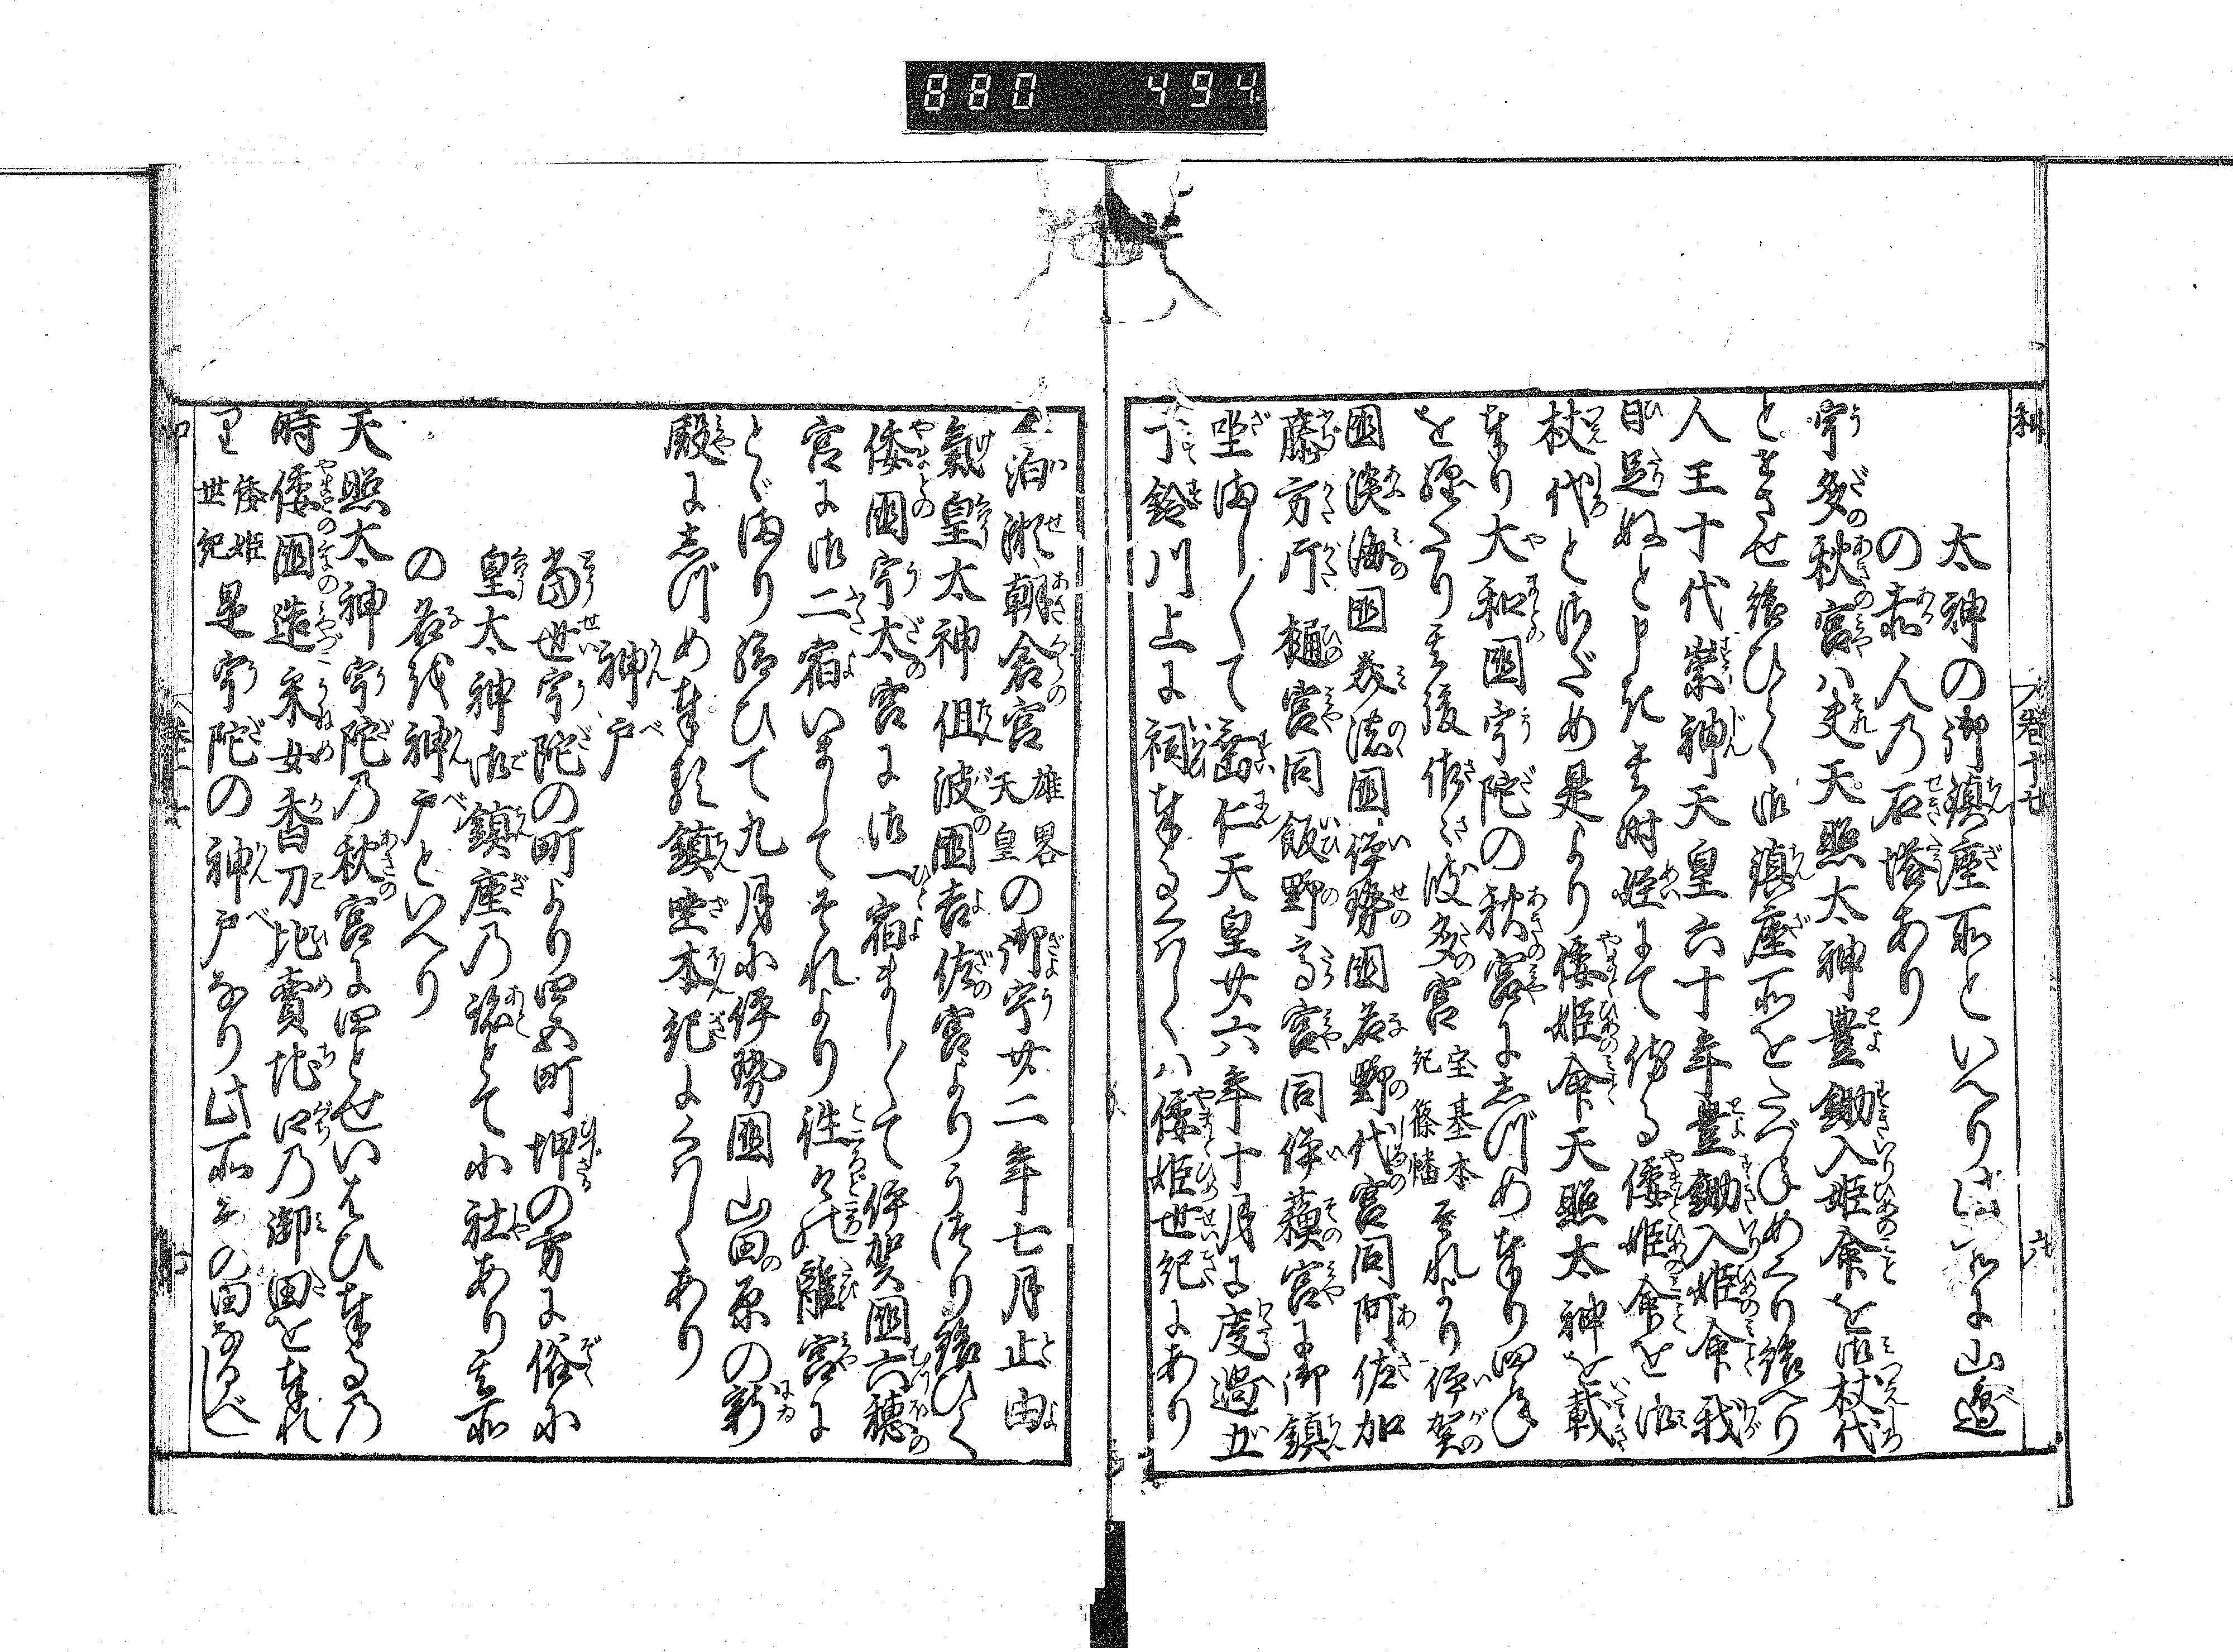 880 494
和 巻十七 六
太神の御鎮座所といへり此所に山邊
の赤人乃石塔あり
宇多秋宮ハ夫天照太神豊鋤入姫命を御杖代
とせさせ給ひて御鎮座所をたづねめぐり給へり
人王十代崇神天皇六十年豊鋤入姫命我
日足ぬと申た其時姫にて侍る倭姫命を御
杖代とさだめ是より倭姫命天照太神を載
奉り大和国宇陀の秋宮にしづめ奉り四年
を経たり其後佐々波多宮宝基本紀篠幡それより伊賀
国淡海国美濃国伊勢国名野代宮同阿佐加
藤方片樋宮同飯野高宮同伊蘓宮に御鎮
坐まし〳〵て垂仁天皇廿六年十月に度遇五
十鈴川上に祠奉るくハしくハ倭姫世紀にあり
泊瀬朝倉宮雄畧天皇の御宇廿二年七月止由
氣皇太神但波国吉佐宮よりうつり給ひて
倭国宇太宮に御一宿まし〳〵て伊賀国六穂
宮に御二宿いましてそれより徃々の離宮に
とゞまり給ひて九月に伊勢国山田原の新
殿にしづめ奉る鎮坐本紀にくハしくあり
神戸
當世宇陀の町より四五町坤の方に俗に
皇太神御鎮座乃跡とて小社あり其所
の名を神戸といへり
天照太神宇陀乃秋宮に四とせいはひ奉る乃
時倭国造采女香刀比賣地口乃御田を奉れ
り倭姫世紀是宇陀の神戸なり此所その田なるべし